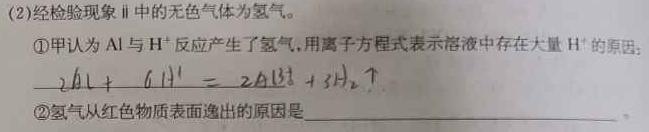 (2)经检验现象ⅱ中的无色气体为氢气。
①甲认为 Al 与 H⁺反应产生了氢气,用离子方程式表示溶液中存在大量 H⁺的原因:
2Al + 6H⁺ = 2Al³⁺ + 3H₂↑
②氢气从红色物质表面逸出的原因是。